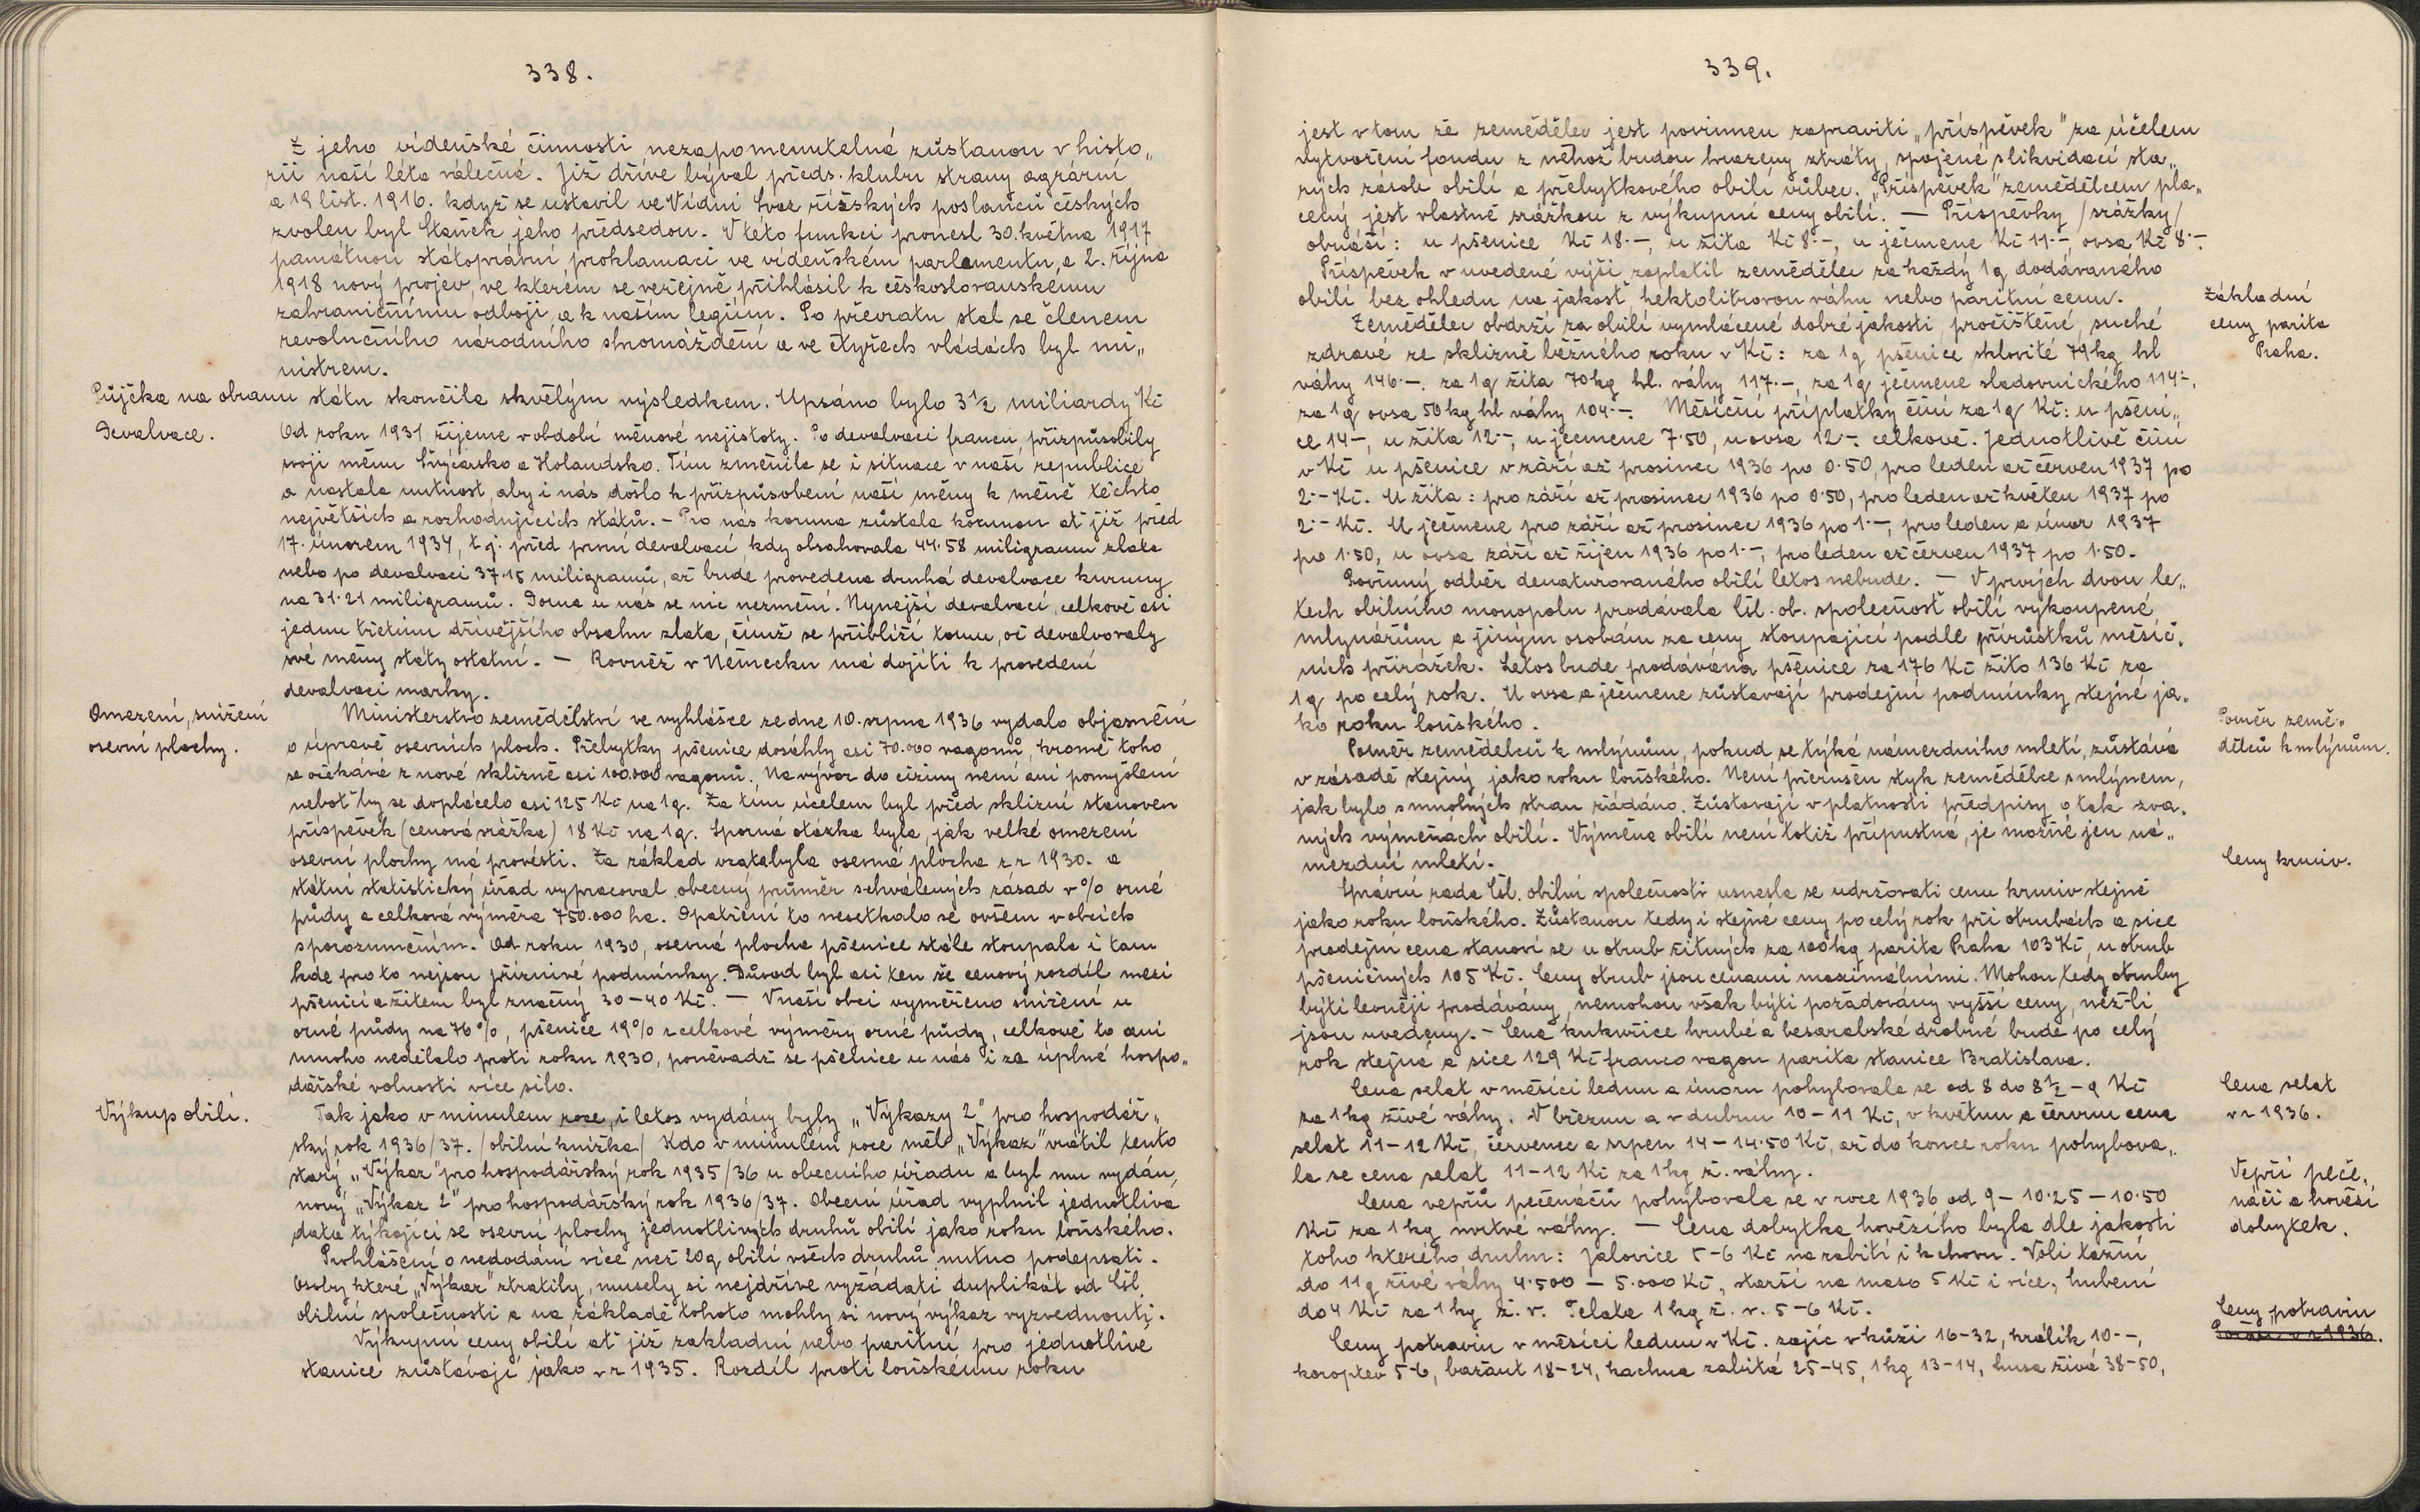 338.
Z jeho vídeňské činnosti nezapomenutelná zůstanou v histo„
rii naší léta válečná. Již dříve býval předs. klubu strany agrární
a 19 list. 1916. když se ustavil ve Vídni Svaz říšských poslanců českých
zvolen byl Staněk jeho předsedou. V této funkci pronesl 30. května 1917
památnou státoprávní proklamaci ve vídeňském parlamentu, a 2. října
1918 nový projev, ve kterém se veřejně přihlásil k československému
zahraničnímu odboji, a k našim legiím. Po převratu stal se členem
revolučního národního shromáždění a ve čtyřech vládách byl mi„
nistrem.
Půjčka na obranu státu skončila skvělým výsledkem. Upsáno bylo 3½ miliardy Kč
Devalvace.
Od roku 1931 žijeme v období měnové nejistoty. Po devalvaci francu, přizpůsobily
svoji měnu Švýcarsko a Holandsko. Tím změnila se i situace v naší republice
a nastala nutnost, aby i nás došlo k přizpůsobení naší měny k měně těchto
největších a rozhodujících států. – Pro nás koruna zůstala korunou ať již před
17. únorem 1934, t.j. před první devalvací kdy obsahovala 44·58 miligramu zlata
nebo po devalvaci 37·15 miligramů, až bude provedena druhá devalvace kuruny
na 31·21 miligramů. Doma u nás se nic nezmění. Nynější devalvací, celkově asi
jednu třetinu dřívějšího obsahu zlata, čímž se přiblíží tomu, oč devalvovaly
své měny státy ostatní. – Rovněž v Německu má dojíti k provedení
devalvaci marky.
Omezení, snížení
osevní plochy.
Ministerstvo zemědělství ve vyhlášce ze dne 10. srpna 1936 vydalo objasnění
o úpravě osevních ploch. Přebytky pšenice dosáhly asi 70.000 vagonů, kromě toho
se očekává z nové sklizně asi 100.000 vagonů. Na vývoz do ciziny není ani pomyšlení
neboť by se doplácelo asi 125 Kč na 1q. Za tím účelem byl před sklizní stanoven
příspěvek (cenová srážka) 18 Kč na 1q. Sporná otázka byla, jak velké omezení
osevní plochy má provésti. Za základ vzata byla osevná plocha z r 1930. a
státní statistický úřad vypracoval obecný průměr schválených zásad v % orné
půdy a celková výměra 750.000 ha. Opatření to nesetkalo se ovšem v obcích
sporozuměním. Od roku 1930, osevná plocha pšenice stále stoupala i tam
kde pro to nejsou příznivé podmínky. Důvod byl asi ten že cenový rozdíl mezi
pšenicí a žitem byl značný 30–40 Kč. – V naší obci vyměřeno snížení u
orné půdy na 76%, pšenice 19% z celkové výměry orné půdy, celkově to ani
mnoho nedělalo proti roku 1930, poněvadž se pšenice u nás i za úplné hospo„
dářské volnosti více silo.
Výkup obilí.
Tak jako v minulem roce, i letos vydány byly „Výkazy 2" pro hospodář„
ský rok 1936/37. /obilní knížka/ Kdo v minulém roce měl „Výkaz" vrátil tento
starý „Výkaz" pro hospodářský rok 1935/36 u obecního úřadu a byl mu vydán
nový „Výkaz 2" pro hospodářský rok 1936/37. Obecní úřad vyplnil jednotliva
data týkající se osevní plochy jednotlivých druhů obilí jako roku loňského.
Prohlášení o nedodání více než 20q obilí všech druhů nutno podepsati.
Osoby které „Výkaz" ztratily, musely si nejdříve vyžádati duplikát od Čsl.
obilní společnosti a na základě tohoto mohly si nový výkaz vyzvednouti.
Výkupní ceny obilí ať již zakladní nebo paritní pro jednotlivé
stanice zůstávají jako v r 1935. Rozdíl proti loňskému roku
339.
jest v tom že zemědělec jest povinnen zapraviti „příspěvek" za účelem
vytvoření fondu z něhož budou hrazeny ztráty, spojené s likvidací sta„
rých zásob obilí a přebytkového obilí vůbec. „Příspěvek" zemědělcem pla„
cený jest vlastně srážkou z výkupní ceny obilí. – Příspěvky /srážky/
obnáší: u pšenice Kč 18·–, u žita Kč 8·–, u ječmene Kč 11·–, ovsa Kč 8·–.
Příspěvek v uvedené výši zaplatil zemědělec za každý 1q dodávaného
obilí bez ohledu na jakosť hektolitrovou váhu nebo paritní cenu.
Základní
ceny parita
Praha.
Zemědělec obdrží za obilí vymlácené dobré jakosti, pročištěné, suché
zdravé ze sklizně běžného roku v Kč: za 1q pšenice sklovité 79kg hl
váhy 146·–. za 1q žita 70kg hl. váhy 117·–, za 1q ječmene sladovnického 114·–,
za 1q ovsa 50kg hl váhy 104·–. Měsíční příplatky činí za 1q Kč: u pšeni„
ce 14–, u žita 12·–, u ječmene 7·50, u ovsa 12·–. celkově. Jednotlivě činí
v Kč u pšenice v září až prosinec 1936 po 0·50, pro leden až červen 1937 po
2·–Kč. U žita: pro září až prosinec 1936 po 0·50, pro leden až květen 1937 po
2·– Kč. U ječmene pro září až prosinec 1936 po 1·–, pro leden a únor 1937
po 1·50, u ovsa září až říjen 1936 po 1·–, pro leden až červen 1937 po 1·50.
Povinný odběr denaturovaného obilí letos nebude. – V prvých dvou le„
tech obilního monopolu prodávala čsl. ob. společnosť obilí vykoupené
mlynářům a jiným osobám za ceny stoupající podle přírůstků měsíč„
ních přirážek. Letos bude prodávána pšenice za 176 Kč žito 136 Kč za
1q po celý rok. U ovsa a ječmene zůstávají prodejní podmínky stejné ja„
ko roku loňského.
Poměr země„
dělců k mlýnům.
Poměr zemědělců k mlýnům, pokud se týká námezdního mletí, zůstává
v zásadě stejný jako roku loňského. Není přerušen styk zemědělce s mlýnem,
jak bylo s mnohých stran žádáno. Zůstávají v platnosti předpisy o tak zva„
ných výměnách obilí. Výměna obilí není totiž přípustná, je možné jen ná„
mezdní mletí.
Ceny krmiv.
Správní rada Čsl. obilní společnosti usnesla se udržovati cenu krmiv stejné
jako roku loňského. Zůstanou tedy i stejné ceny po celý rok při otrubách a sice
prodejní cena stanoví se u otrub žitných za 100kg parita Praha 103 Kč, u otrub
pšeničných 105 Kč. Ceny otrub jsou cenami maximálními. Mohou tedy otruby
býti levněji prodávány, nemohou však býti požadovány vyšší ceny, než-li
jsou uvedeny. – Cena kukuřice hrubé a besarabské drobné bude po celý
rok stejná a sice 129 Kč franco vagon parita stanice Bratislava.
Cena selat
v r 1936.
Cena selat v měsíci lednu a únoru pohybovala se od 8 do 8½–9 Kč
za 1kg živé váhy. V březnu a v dubnu 10–11 Kč, v květnu a červnu cena
selat 11–12 Kč, červenec a srpen 14–14·50 Kč, až do konce roku pohybova„
la se cena selat 11–12 Kč za 1kg ž. váhy.
Vepři peče„
náči a hovězí
dobytek.
Cena vepřů pečenáčů pohybovala se v roce 1936 od 9–10·25–10·50
Kč za 1kg mrtvé váhy. – Cena dobytka hovězího byla dle jakosti
toho kterého druhu: Jalovice 5–6 Kč na zabití i k chovu. Voli tažní
do 11q živé váhy 4·500 – 5·000 Kč, starší na maso 5 Kč i více, hubení
do 4 Kč za 1kg ž. v. Telata 1kg ž. v. 5–6 Kč.
Ceny potravin
v r 1936.
Ceny potravin v měsíci lednu v Kč. zajíc v kůži 16–32, králík 10·–,
koroptev 5–6, bažant 18–24, kachna zabitá 25–45, 1kg 13–14, husa živá 38–50,